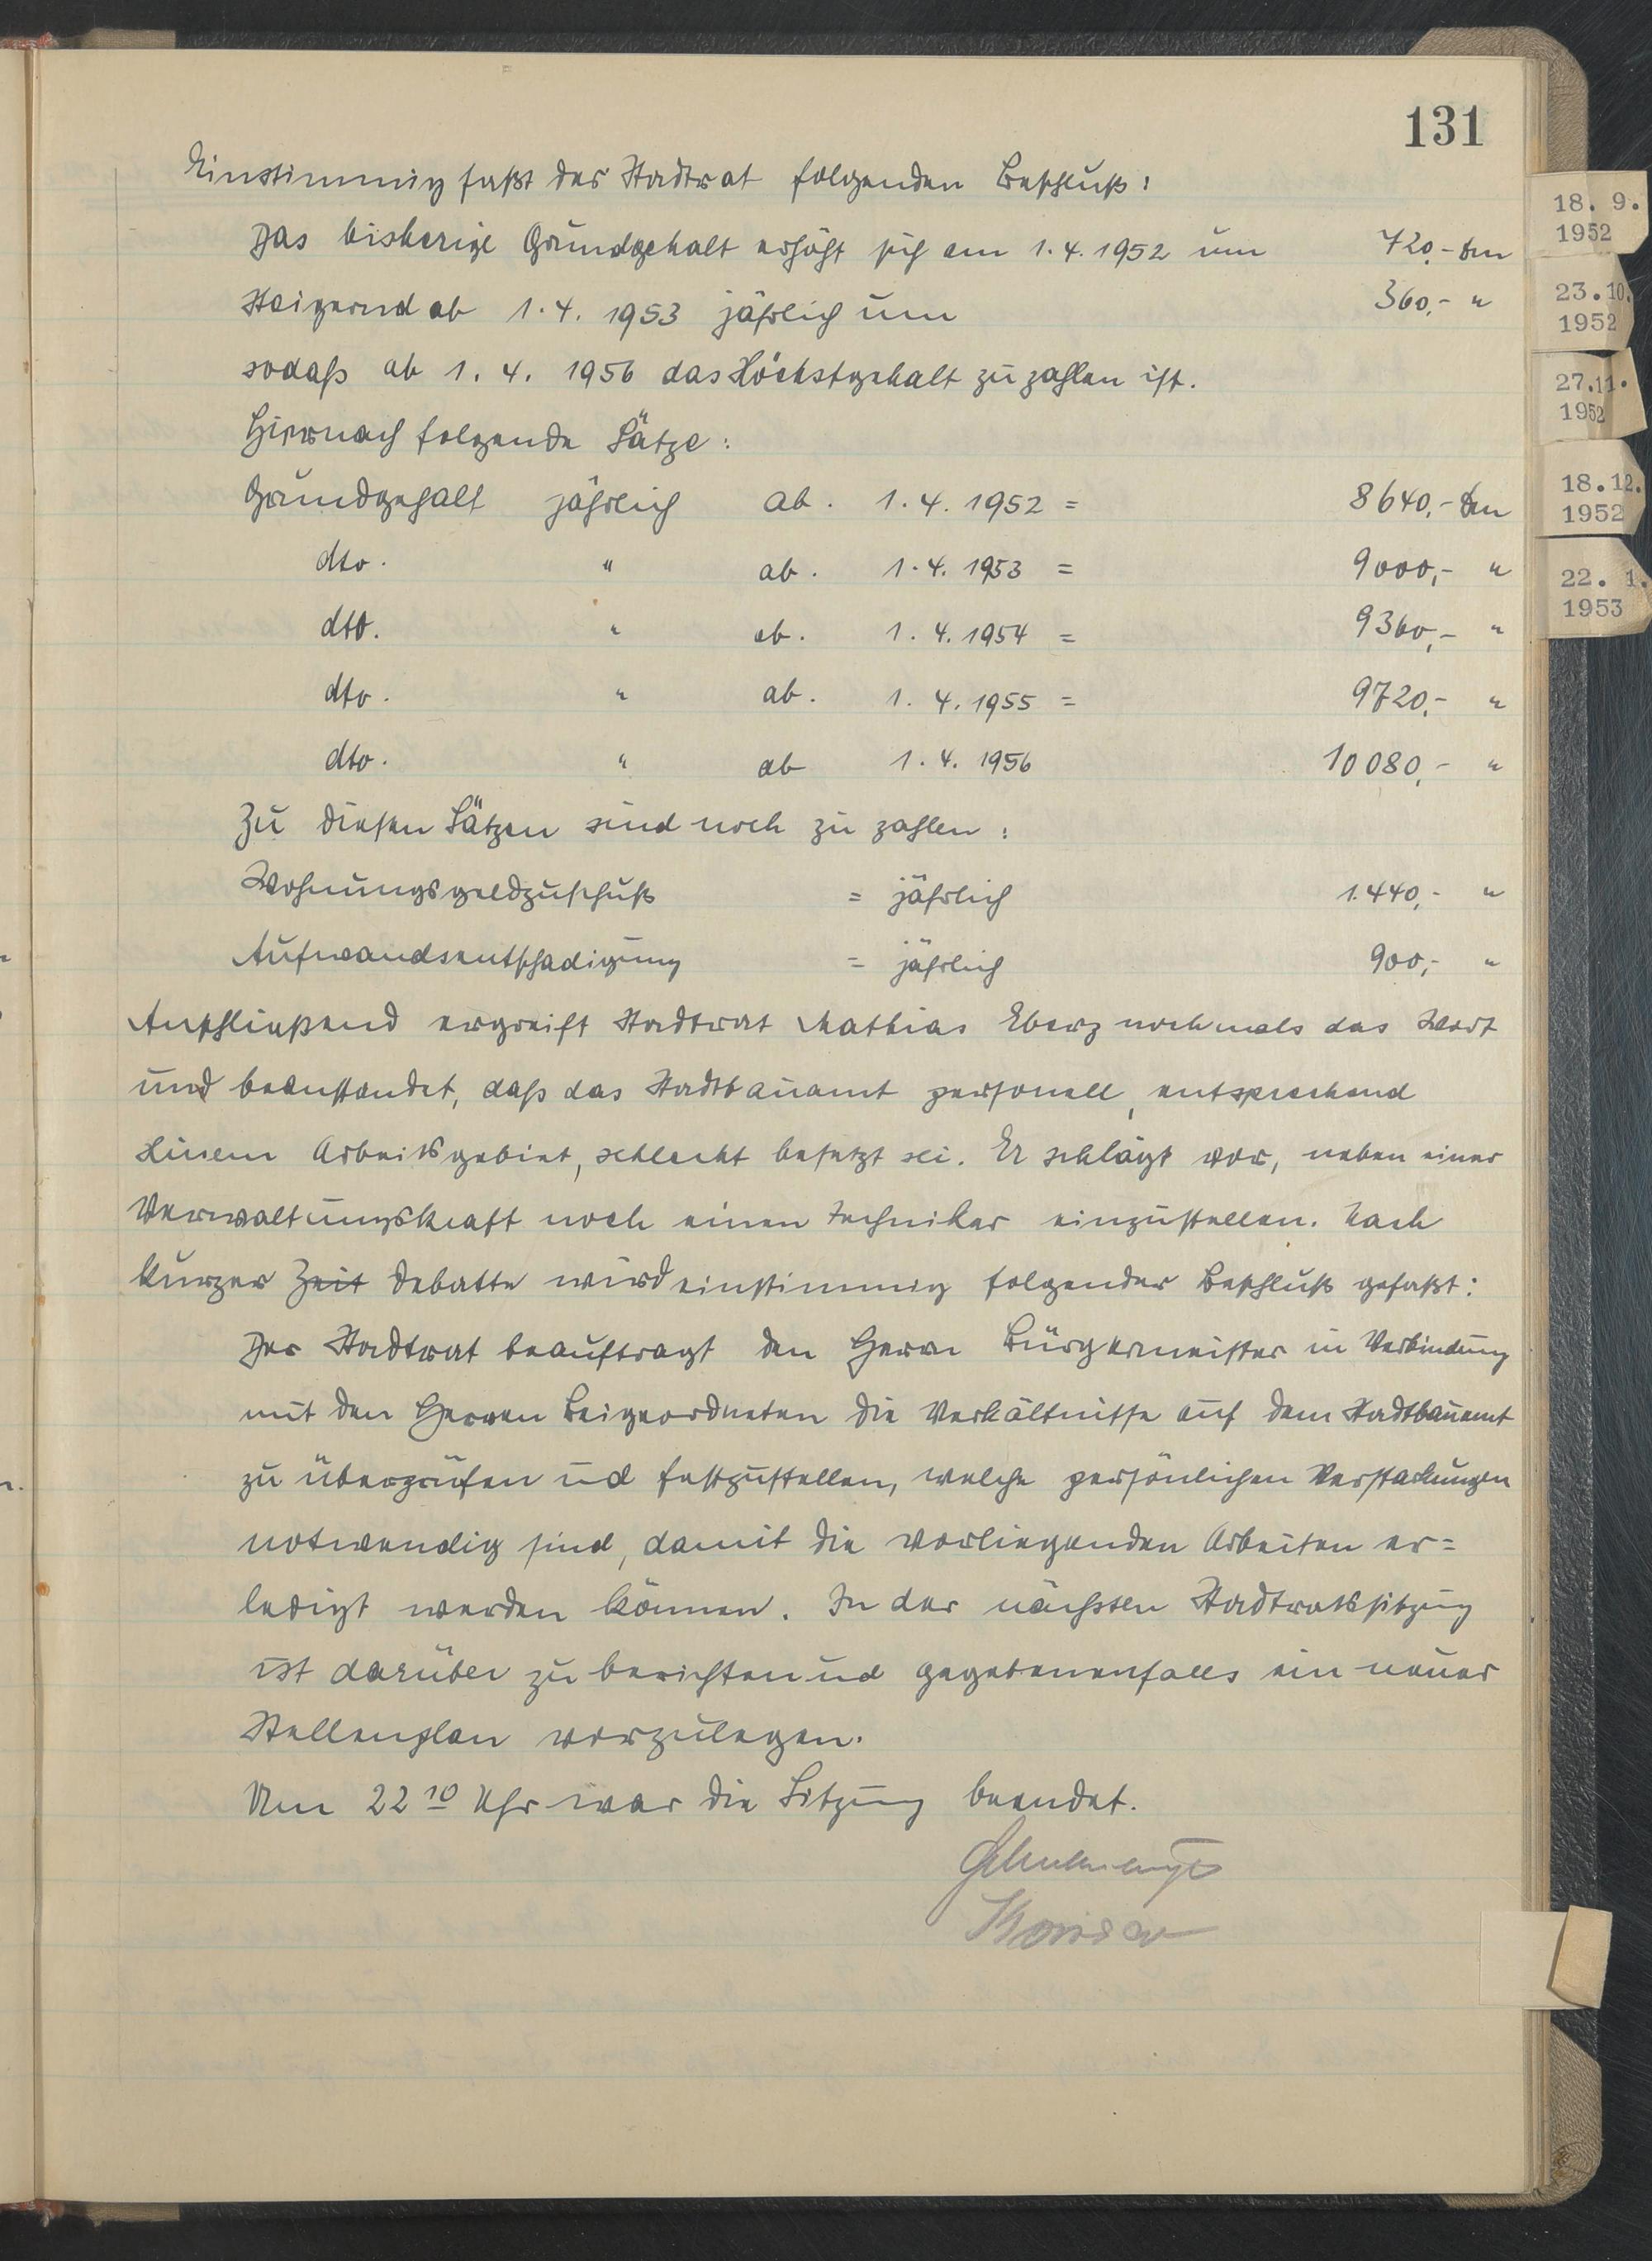 131
Einstimmig faßt der Stadtrat folgenden Beschluß:
Das bisherige Grundgehalt erhöht sich am 1.4.1952 um 720,- Dm
Steigernd ab 1.4. 1953 jährlich um 360,- "
sodaß ab 1. 4. 1956 das Höchstgehalt zu zahlen ist.
Hiernach folgende Sätze:
Grundgehalt jährlich ab. 1.4.1952 = 8640,- Dm
dto. " ab. 1.4.1953 = 9000,- "
dto. " ab. 1.4.1954 = 9360,- "
dto. " ab. 1.4.1955 = 9720,- "
dto. " ab 1.4. 1956 10080,- "
Zu diesen Sätzen sind noch zu zahlen:
Wohnungsgeldzuschuß = jährlich 1.440,- "
Aufwandsentschadigung = jährlich 900,- "
Anschließend ergreift Stadtrat Mathias Eberz nochmals das Wort
und beanstandet, daß das Stadtbauamt personell, entsprechend
seinem Arbeitsgebiet, schlecht besetzt sei. Er schlägt vor, neben einer
Verwaltungskraft noch einen Techniker einzustellen. Nach
kurzer Zeit Debatte wird einstimmig folgender Beschluß gefaßt:
Der Stadtrat beauftragt den Herrn Bürgermeister in Verbindung
mit den Herren Beigeordneten die Verhältnisse auf dem Stadtbauamt
zu überprüfen ud festzustellen, welche persönlichen Verstärkungen
notwendig sind, damit die vorliegenden Arbeiten er=
ledigt werden können. In der nächsten Stadtratssitzung
ist darüber zu berichten ud gegebenenfalls ein neuer
Stellenplan vorzulegen.
Um 22 10 Uhr war die Sitzung beendet.
18. 9.
1952
23.10.
1952
27.11.
1952
18.12.
1952
22. 1.
1953